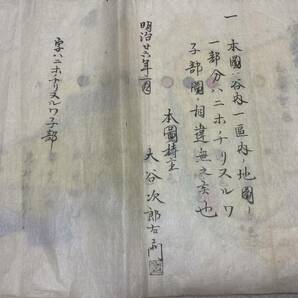 一 本圖ハ谷内一區内ノ地圖ノ
一部分ハニホチリスルワ
子部圖ニ相違無之候也
本圖持主
大谷次郎右衛門
明治廿六年一月
字ハニホチリスルワ子部